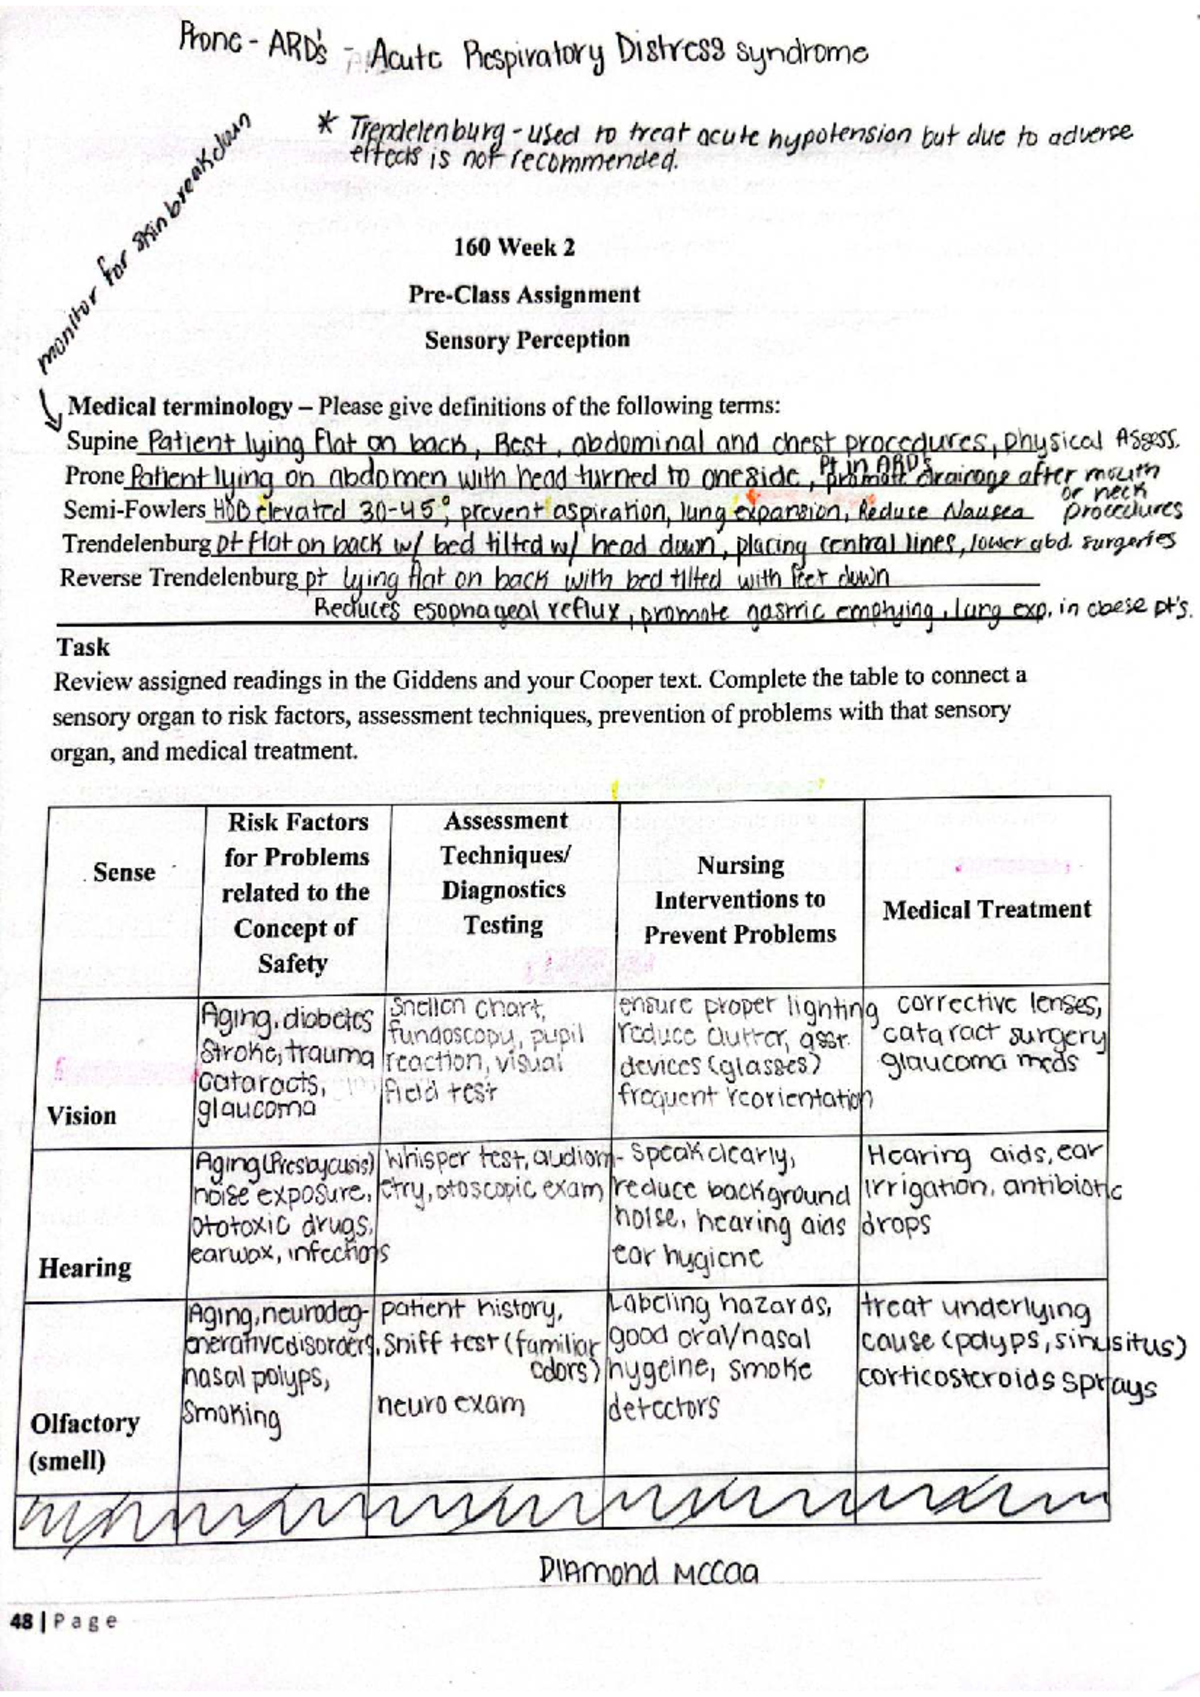 Prone - ARD's - Acute Respiratory Distress syndrome
* Trendelenburg - used to treat acute hypotension but due to adverse
effects is not recommended.
monitor for skin breakdown
160 Week 2
Pre-Class Assignment
Sensory Perception
Medical terminology – Please give definitions of the following terms:
Supine Patient lying flat on back, Rest, abdominal and chest procedures, physical Assess.
Prone Patient lying on abdomen with head turned to one side, Pt in ARD's promote drainage after mouth or neck procedures
Semi-Fowlers HOB elevated 30-45°, prevent aspiration, lung expansion, Reduce Nausea
Trendelenburg pt flat on back w/ bed tilted w/ head down, placing central lines, lower abd. surgeries
Reverse Trendelenburg pt lying flat on back with bed tilted with feet down
Reduces esophageal reflux, promote gastric emptying, lung exp. in obese pt's.
Task
Review assigned readings in the Giddens and your Cooper text. Complete the table to connect a
sensory organ to risk factors, assessment techniques, prevention of problems with that sensory
organ, and medical treatment.
Sense
Risk Factors
for Problems
related to the
Concept of
Safety
Assessment
Techniques/
Diagnostics
Testing
Nursing
Interventions to
Prevent Problems
Medical Treatment
Vision
Aging, diabetes
Stroke, trauma
cataracts,
glaucoma
Snellen chart,
fundoscopy, pupil
reaction, visual
field test
ensure proper lighting
reduce clutter, asst.
devices (glasses)
frequent reorientation
corrective lenses,
cataract surgery
glaucoma meds
Hearing
Aging (Presbycusis)
noise exposure,
ototoxic drugs,
earwax, infections
Whisper test, audiom-
etry, otoscopic exam
Speak clearly,
reduce background
noise, hearing aids
ear hygiene
Hearing aids, ear
irrigation, antibiotic
drops
Olfactory
(smell)
Aging, neurodeg-
enerative disorders,
nasal polyps,
Smoking
patient history,
Sniff test (familiar
odors)
neuro exam
Labeling hazards,
good oral/nasal
hygeine, smoke
detectors
treat underlying
cause (polyps, sinusitus)
corticosteroids sprays
Diamond McCaa
48 | Page